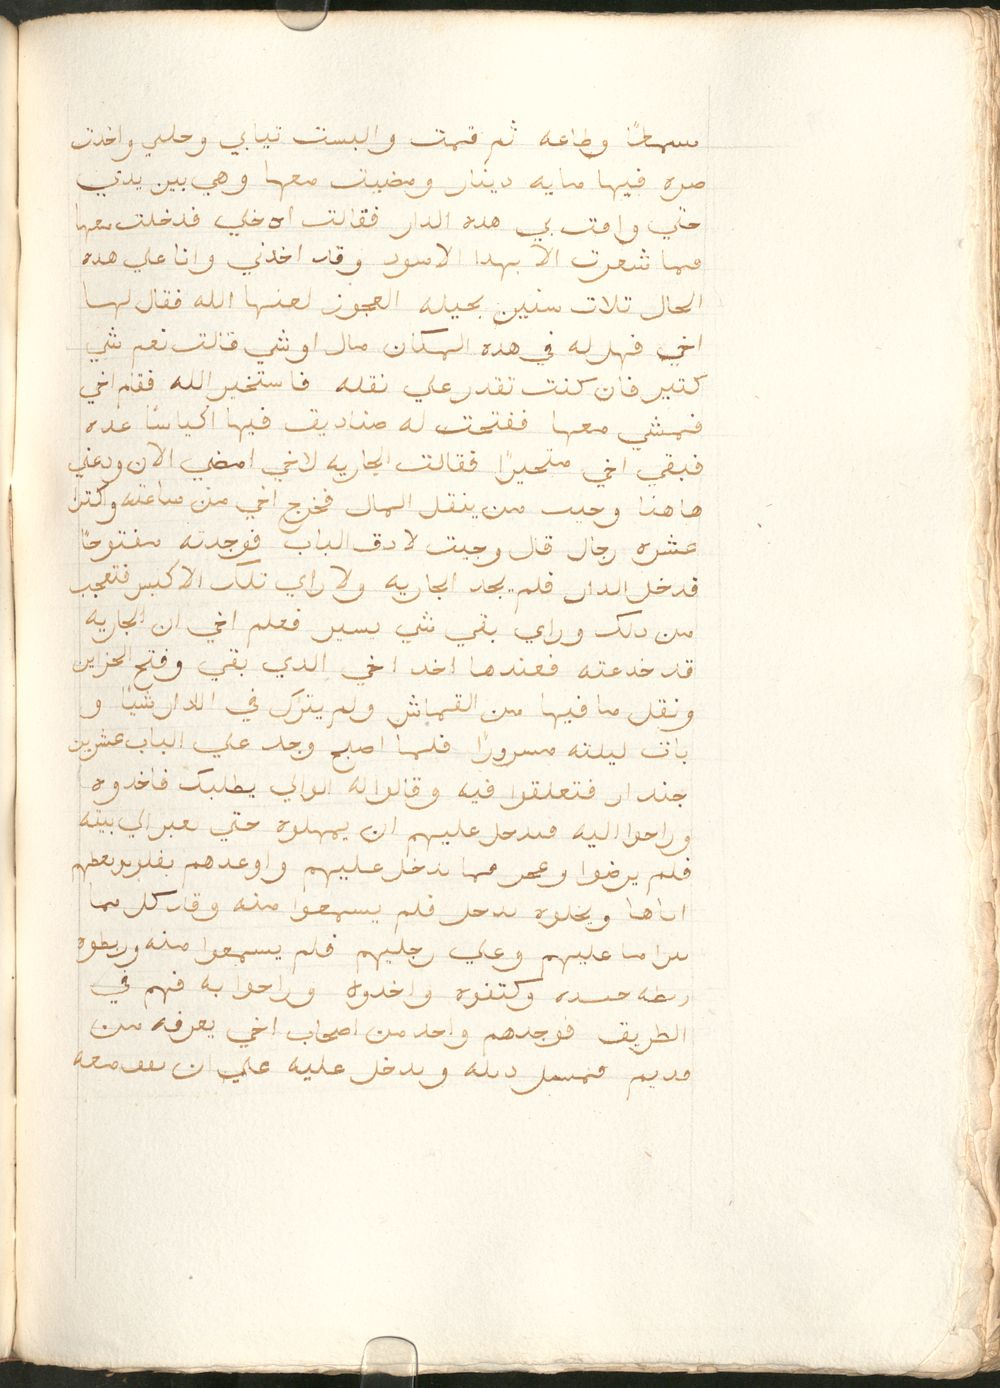 سمعًا وطاعه ثم قمت والبست تيابي وحليي واخدت
صره فيها مايه دينار ومضيت معها وهي بين يدي
حتي وافت بي هده الدار فقالت ادخلي فدخلت معها
فما شعرت الا بهدا الاسود وقد اخدني وانا علي هده
الحال تلات سنين بحيله العجوز لعنها الله فقال لها
اخي فهل له في هده المكان مال او شي قالت نعم شي
كتير فان كنت تقدر علي نقله فاستخير الله فقام اخي
فمشي معها ففتحت له صناديق فيها اكياسًا عده
فبقي اخي متحيرًا فقالت الجاريه لاخي امضي الان ودعني
هاهنا وجيب من ينقل المال فخرج اخي من ساعته واكترا
عشره رجال قال وجيت لادق الباب فوجدته مفتوحًا
فدخل الدار فلم يجد الجاريه ولا راي تلك الاكيس فتعجب
من دلك وراي بقي شي يسير فعلم اخي ان الجاريه
قد خدعته فعندها اخد اخي الدي بقي وفتح الخزاين
ونقل ما فيها من القماش ولم يترك في الدار شيًا و
بات ليلته مسرورًا فلما اصبح وجد علي الباب عشرين
جندار فتعلقوا فيه وقالوا له الوالي يطلبك فاخدوه
وراحوا اليه فدخل عليهم ان يمهلوه حتي يعبر الي بيته
فلم يرضوا وعجز مما يدخل عليهم واوعدهم بفلوس يعطيهم
اياها ويخلوه يدخل فلم يسمعوا منه وقد كل مما
يتراما عليهم وعلي رجليهم فلم يسمعوا منه وربطوه
ربطه جيده وكتفوه واخدوه وراحوا به فهم في
الطريق فوجدهم واحد من اصحاب اخي يعرفه من
قديم فمسك ديله ويدخل عليه علي ان يقف معه